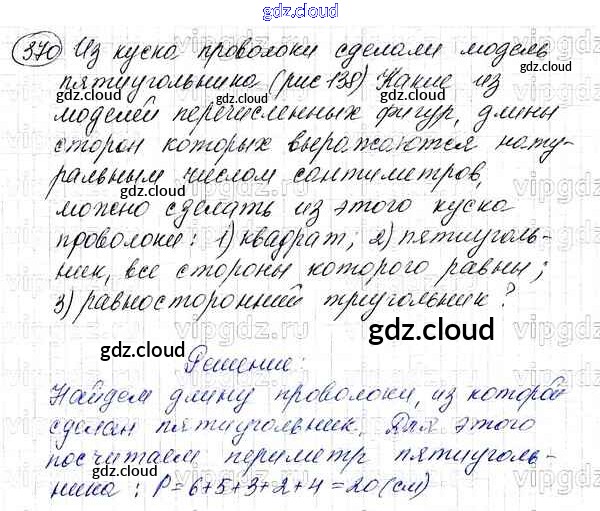 gdz.cloud
370 Из куска проволоки сделали модель
пятиугольника (рис 138) Какие из
моделей перечисленных фигур, длины
сторон которых выражаются нату-
ральным числом сантиметров,
можно сделать из этого куска
проволоки: 1) квадрат; 2) пятиуголь-
ник, все стороны которого равны;
3) равносторонний треугольник?
Решение:
Найдем длину проволоки, из которой
сделан пятиугольник. Для этого
посчитаем периметр пятиуголь-
ника: P=6+5+3+2+4=20(см)